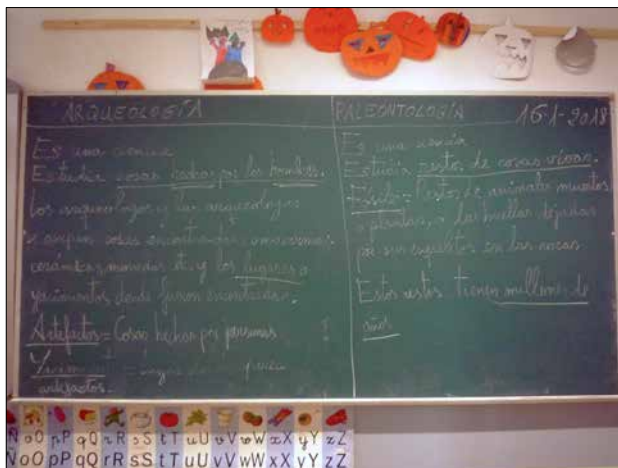 ARQUEOLOGÍA
Es una ciencia
Estudia cosas hechas por los hombres.
Los arqueólogos y las arqueólogas
se ocupan cosas encontradas, como armas,
cerámicas, monedas et. y los lugares o
yacimientos donde fueron encontradas.
Artefactos = Cosas hechas por personas
artefactos.
PALEONTOLOGÍA 16-1-2018
Es una ciencia
Estudia restos de cosas vivas.
Fósil = Restos de animales muertos
o plantas, o las huellas dejadas
por sus esqueletos en las rocas
Estos restos tienen millones de
años
Ñ oO pP qQ rR sS tT uU vV wW xX yY zZ
Ñ oO pP qQ rR sS tT uU vV wW xX yY zZ